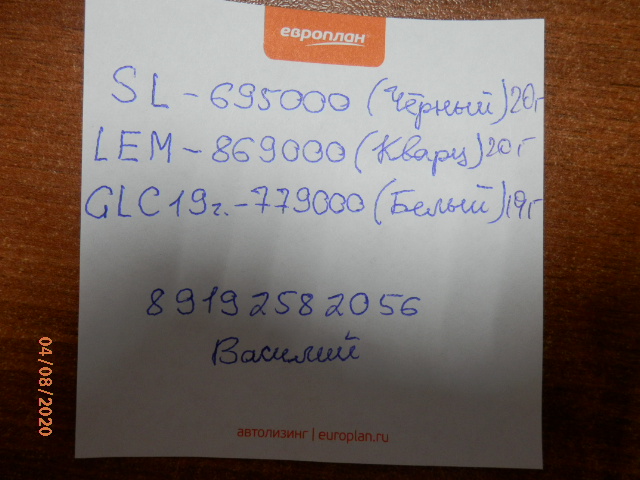 европлан
SL - 695000 (Чёрный) 20г
LEM - 869000 (Кварц) 20г
GLC 19г. - 779000 (Белый) 19г
89192582056
Василий
автолизинг | europlan.ru
04/08/2020